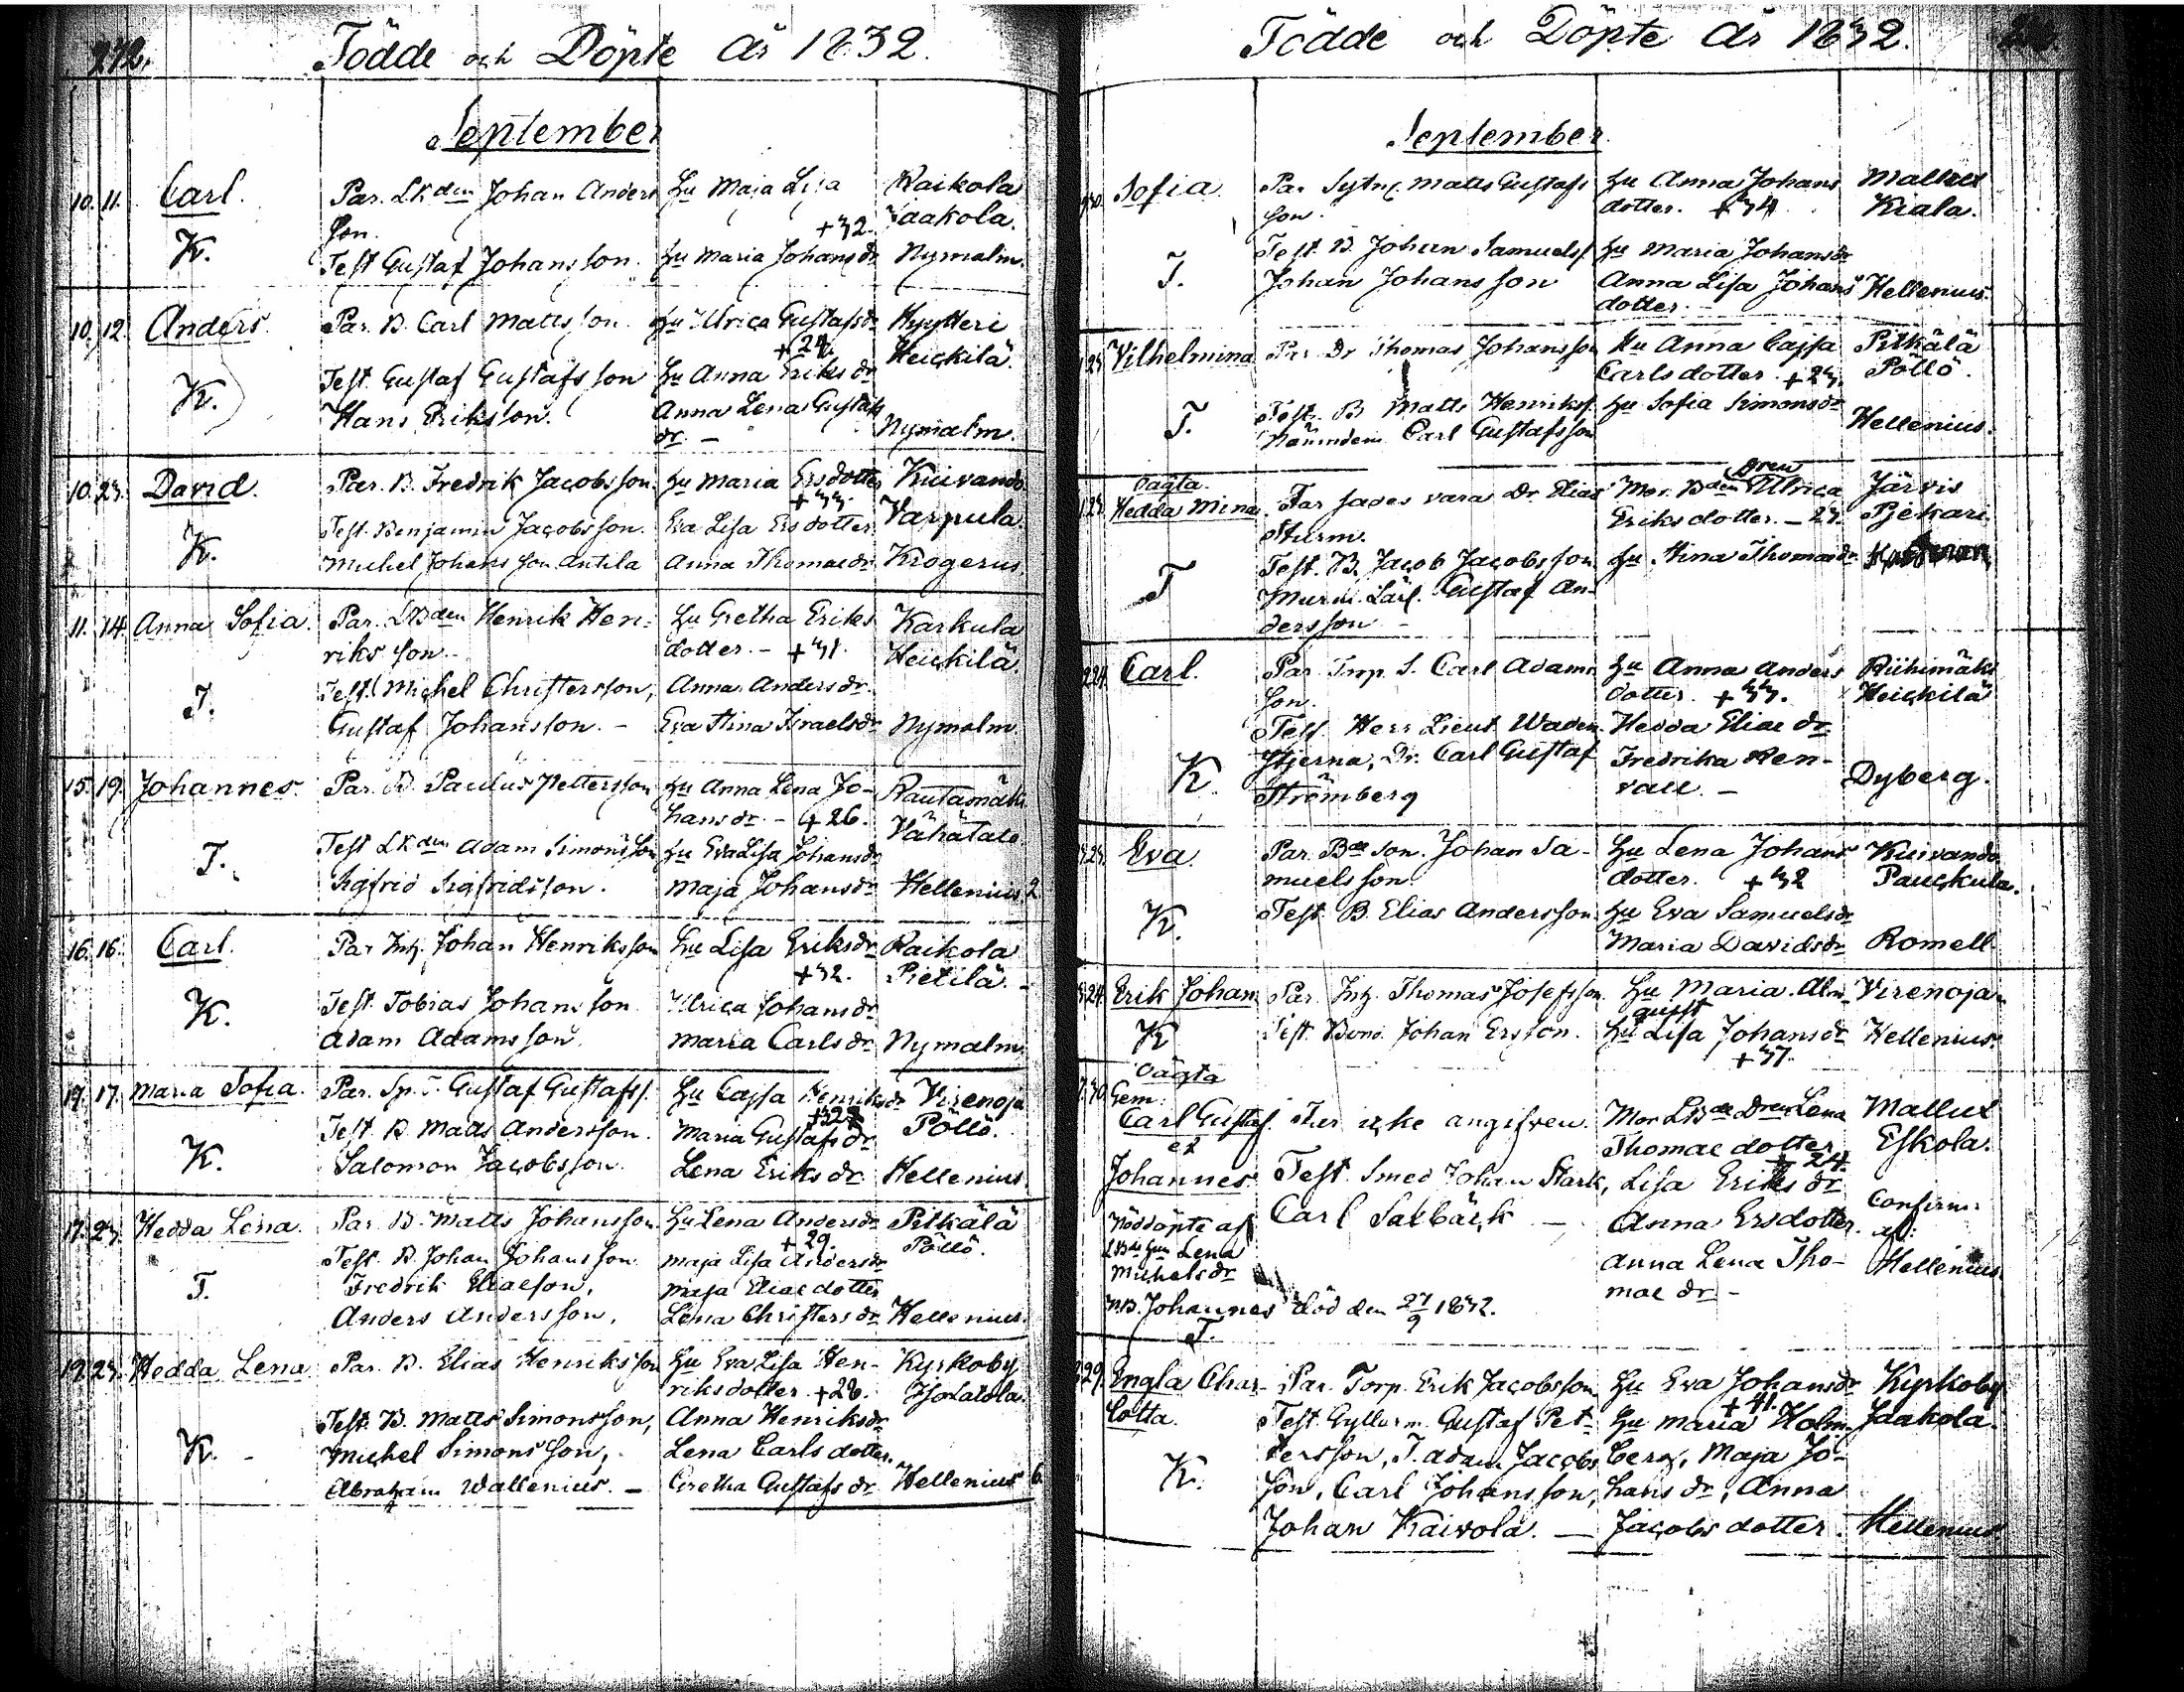 272.
Födde och Döpte År 1832.
September
10. 11. Carl. Par. LKden Johan Anders Hu Maja Lisa Raikola
son. +32. Jaakola.
K. Test Gustaf Johansson. Hu Maria Johansdr Nymalm.
10. 12. Anders. Par. B. Carl Mattsson. Hu Ulrica Gustafsdr Kyytteri
+24. Heickilä.
Test. Gustaf Gustafsson Hu Anna Eriksdr
K. Hans Eriksson. Anna Lena Gustafs
dr. – Nymalm.
10. 23. David. Par. B. Fredrik Jacobsson. Hu Maria Ersdotter Kuivando
+33. Varpula.
Test. Benjamin Jacobsson. Eva Lisa Ersdotter.
K. Michel Johansson Antila Anna Thomaedr Krogerus
11. 14. Anna Sofia. Par. LBden Henrik Hen- Hu Gretha Eriks Karkula
riksson. dotter. – +31. Heickilä.
Test. Michel Christersson, Anna Andersdr.
T. Gustaf Johansson. – Eva Stina Israelsdr Nymalm
15. 19. Johannes. Par. B. Paulus Pettersson Hu Anna Lena Jo- Rautamäki
hansdr. – +26. Vähätalo.
Test LKden Adam Simonsson Hu Eva Lisa Johansdr
T. Sigfrid Sigfridsson. Maja Johansdr Hellenius 2
16. 16. Carl. Par Inh. Johan Henriksson Hu Lisa Eriksdr Raikola
+32. Pietilä. –
K. Test. Tobias Johansson Ulrica Johansdr
Adam Adamsson. Maria Carlsdr Nymalm.
17. 17. Maria Sofia. Par. Sp. T. Gustaf Gustafss. Hu Cajsa Henriksdr Virenoja
+32 Pöllö.
Test. B. Matts Andersson. Maria Gustafsdr
K. Salomon Jacobsson. Lena Eriksdr. Hellenius
17. 23. Hedda Lena. Par. B. Matts Johansson. Hu Lena Andersdr Pitkälä
+29. Pöllö.
Test. B. Johan Johansson. Maja Lisa Andersdr
T. Fredrik Eliaeson, Maja Eliae dotter
Anders Andersson, Lena Christersdr Hellenius.
19. 23. Hedda Lena. Par. B. Elias Henriksson Hu Eva Lisa Hen- Kyrkoby
riksdotter +28.
Test. B. Matts Simonsson, Anna Henriksdr
K. – Michel Simonsson, Lena Carlsdotter.
Abraham Wallenius. – Gretha Gustafsdr. Hellenius 6
Födde och Döpte År 1832.
September
Sofia. Par Sytn. Matts Gustafs Hu Anna Johans Mallux
son. dotter. +34. Kiala.
Test. B. Johan Samuelss. Hu Maria Johansdr
T. Johan Johansson Anna Lisa Johans Hellenius.
dotter.
Vilhelmina Par. Dr Thomas Johansson Hu Anna Cajsa Pitkälä
Carlsdotter. +23. Pöllö.
Test. B Matts Henrikss. Hu Sofia Simonsdr
T. Nämndem. Carl Gustafsson Hellenius.
Oägta. Dren
Hedda Mina. Far sades vara Dr. Elias Mor. Bden Ulrica Järvis
Sturm. Eriksdotter. – 23. Pjekari
Test. B. Jacob Jacobsson Hu. Stina Thomaedr.
T Murm. Lärl. Gustaf An-
dersson –
Carl. Par. Torp. S. Carl Adams Hu Anna Anders Riihimäki
son. dotter. +33. Heickilä
Test. Herr Lieut. Waden- Hedda Eliae dr
K stjerna, Dr. Carl Gustaf Fredrika Ren-
Strömberg vall. – Dyberg.
Eva. Par. Bde Son. Johan Sa- Hu Lena Johans Kuivando
muelsson. dotter. +32 Pauckula.
Test. B. Elias Andersson Hu Eva Samuelsdr
K. Maria Davidsdr Romell.
Erik Johan Par. Inh. Thomas Josefsson. Hu Maria Alm- Virenoja
quist
K Test. Bond. Johan Ersson. Hu Lisa Johansdr Hellenius.
+37.
Oägta
Gem:
Carl Gustaf. Far icke angifven. Mor LBde Dren Lena Mallux
et Thomae dotter Eskola.
+24.
Johannes Test. Smed Johan Stark, Lisa Eriks dr Confirm:
Nöddöpte af Carl Salbäck – Anna Ersdotter. af:
LBde Hun Lena Anna Lena Tho- Hellenius
Michelsdr mae dr –
NB. Johannes död den 27/9 1832.
T.
29. Engla Char- Par. Torp. Erik Jacobsson Hu Eva Johansdr Kyrkoby
+41.
lotta. Test. Gyllerm. Gustaf Pet- Hu Maria Holm- Jaakola.
tersson, T. Adam Jacobs berg, Maja Jo-
K. son, Carl Johansson, hans dr, Anna
Johan Kaivola. – Jacobsdotter. Hellenius